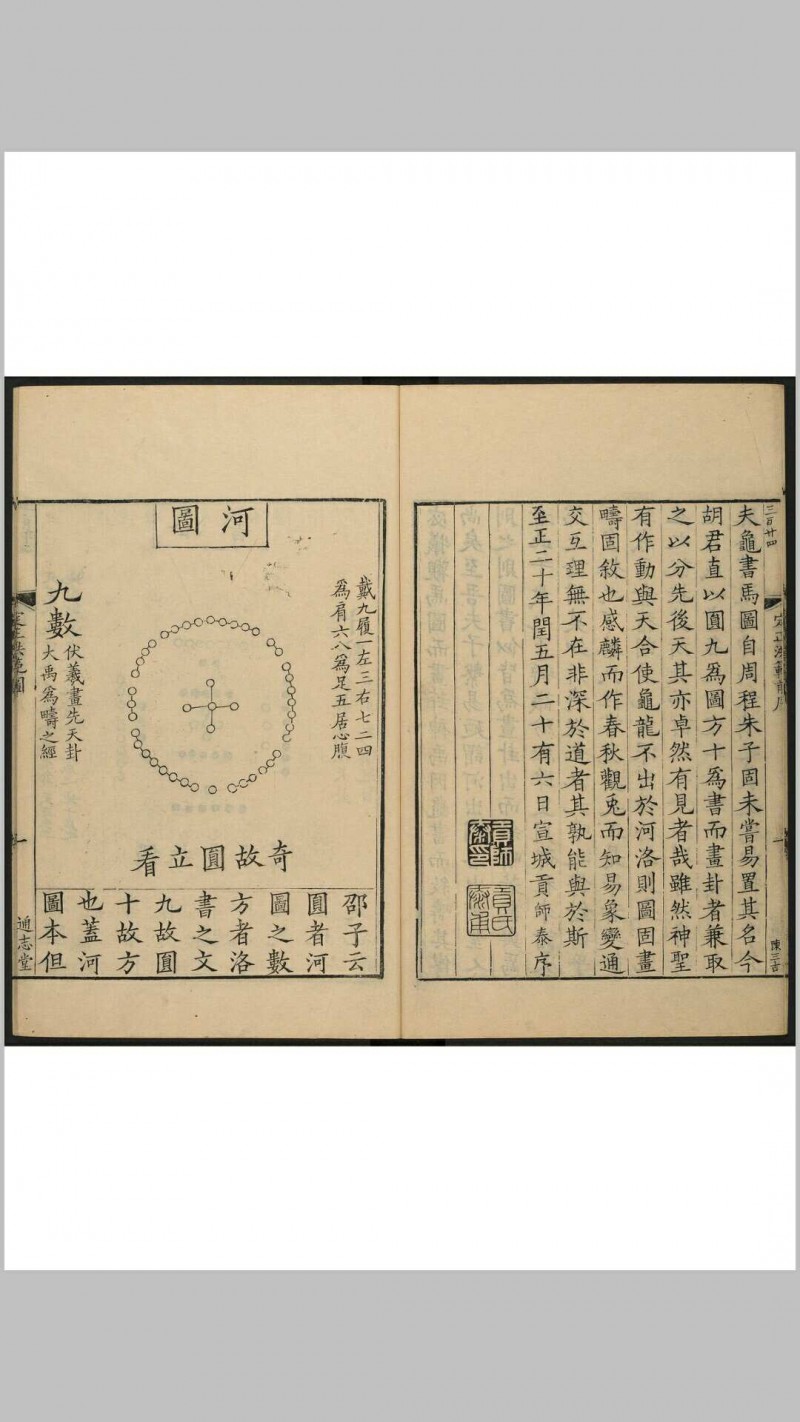 三百廿四
夫龜書馬圖自周程朱子固未嘗易置其名今
胡君直以圓九為圖方十為書而畫卦者兼取
之以分先後天其亦卓然有見者哉雖然神聖
有作動與天合使龜龍不出於河洛則圖固畫
疇固敘也感麟而作春秋觀兎而知易象變通
交互理無不在非深於道者其孰能與於斯
至正二十年閏五月二十有六日宣城貢師泰序
貢師
泰印
貢氏
河圖
戴九履一左三右七二四
為肩六八為足五居心腹
九數
伏羲畫先天卦
大禹為疇之經
奇故圓立看
邵子云
圓者河
圖之數
方者洛
書之文
九故圓
十故方
也蓋河
圖本但
定正洪範圖
一
通志堂